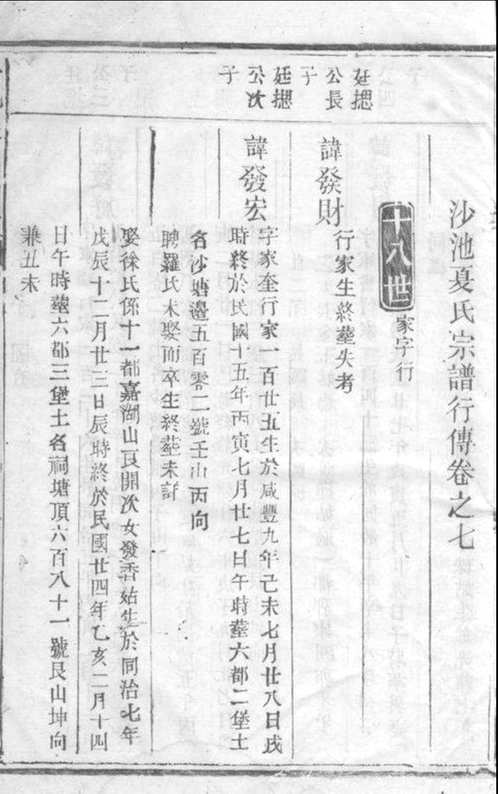 沙池夏氏宗譜行傳卷之七
十八世
家字行
廷摠
公長
子
諱發財
行家生終塟失考
廷摠
公次
子
諱發宏
字家奎行家一百廿五生於咸豐九年己未七月廿八日戌
時終於民國十五年丙寅七月廿七日午時塟六都二堡土
名沙塘邊五百零二號壬山丙向
聘羅氏未娶而卒生終塟未討
娶徐氏係十一都嘉湖山良開次女發香姑生於同治七年
戊辰十二月廿三日辰時終於民國廿四年乙亥二月十四
日午時塟六都三堡土名祠塘頂六百八十一號艮山坤向
兼丑未